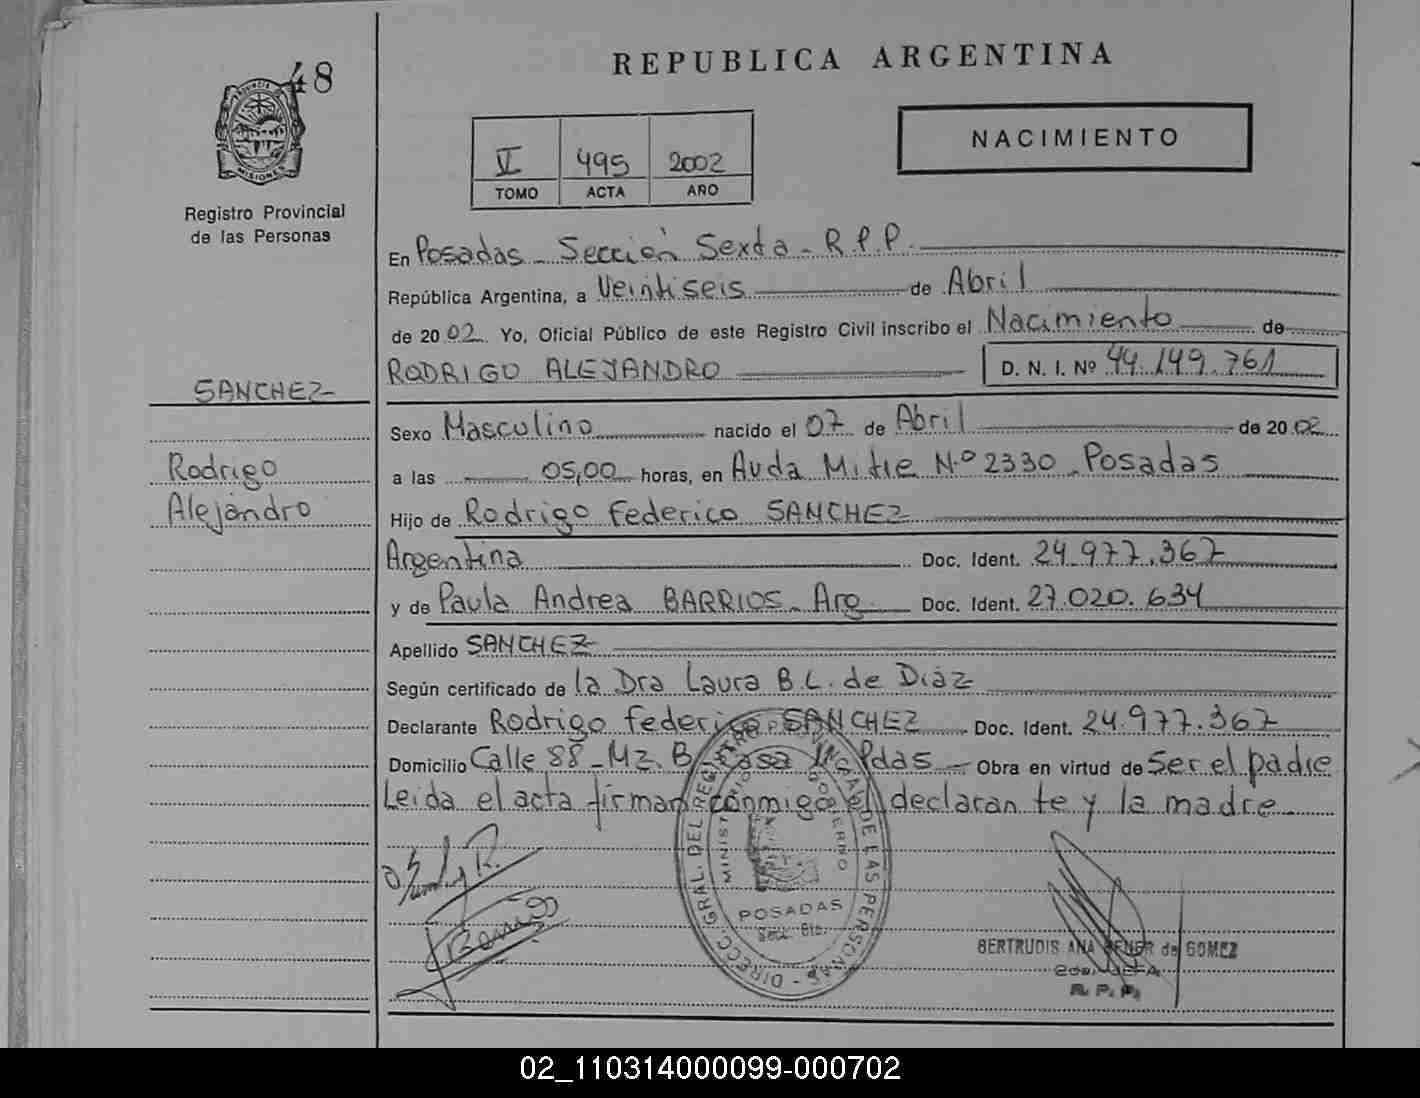 48
REPUBLICA ARGENTINA
PROVINCIA DE
MISIONES
Registro Provincial
de las Personas
VI 495 2002
TOMO ACTA AÑO
NACIMIENTO
En Posadas - Sección Sexta - R.P.P.
República Argentina, a Veintiseis de Abril
de 2002 Yo, Oficial Público de este Registro Civil inscribo el Nacimiento de
RODRIGO ALEJANDRO D. N. I. Nº 44.149.761
SANCHEZ
Rodrigo
Alejandro
Sexo Masculino nacido el 07 de Abril de 2002
a las 05,00 horas, en Avda Mitre N.º 2330 - Posadas
Hijo de Rodrigo Federico SANCHEZ
Argentina Doc. Ident. 24.977.367
y de Paula Andrea BARRIOS - Arg. Doc. Ident. 27.020.634
Apellido SANCHEZ
Según certificado de la Dra Laura B.L. de Diaz
Declarante Rodrigo Federico SANCHEZ Doc. Ident. 24.977.367
Domicilio Calle 88 - Mz. B Casa Pdas - Obra en virtud de Ser el padre
Leida el acta firman conmigo el declarante y la madre
DIRECC. GRAL. DEL REGISTRO PROVINCIAL DE LAS PERSONAS
MINISTERIO GOBIERNO
POSADAS
Secc. 6ta.
BERTRUDIS ANA de GOMEZ
2da. JEFA
R. P. P.
02_110314000099-000702